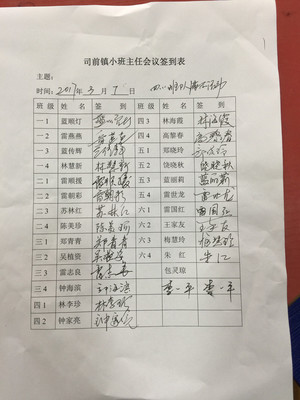 司前镇小班主任会议签到表
主题：
时间：2017年3月7日
班级 姓名 签到 班级 姓名 签到
一1 蓝顺灯 四3 林海霞 林海霞
一2 雷燕燕 雷燕燕 四4 高黎春 高黎春
一3 蓝传辉 五1 郑晓玲
一4 林慧新 林慧新 五2 饶晓秋 饶晓秋
二1 雷顺援 五3 蓝丽莉 蓝丽莉
二2 雷朝彩 五4 雷世龙 雷世龙
二3 苏林红 苏林红 六1 雷国红 雷国红
二4 陈美珍 陈美珍 六2 王家友 王家友
三1 郑青青 郑青青 六3 梅慧玲 梅慧玲
三2 吴植资 六4 朱红 朱红
三3 雷志良 包灵琼
三4 钟海滨 钟海滨
四1 林李珍 林李珍
四2 钟家亮 钟家亮